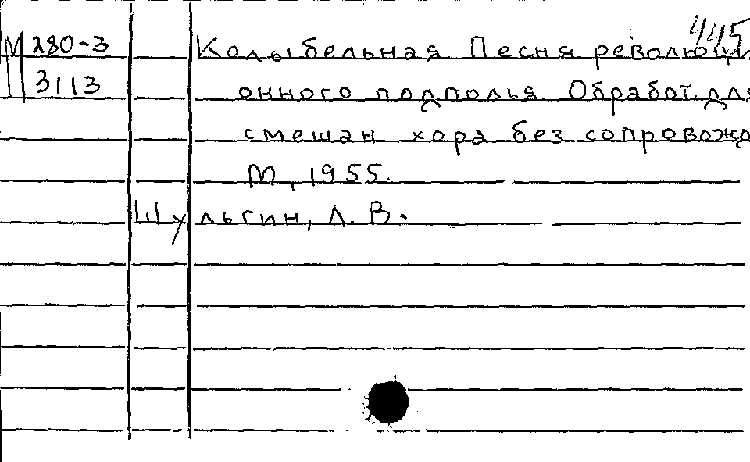 445
М 280-3 Колыбельная Песня революци
3113 онного подполья Обработ. для
смешан хора без сопровожд
М, 1955.
Шульгин, Л. В.